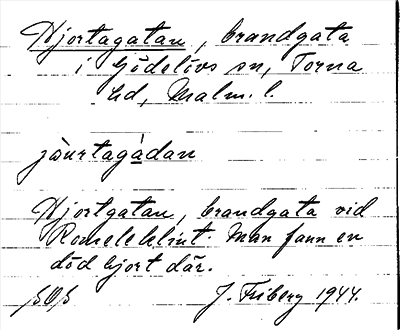 Hjortagatan, brandgata
i Gödelövs sn, Torna
hd, Malm. l.
jåurtagàdan
Hjortgatan, brandgata vid
Romeleklint. Man fann en
död hjort där.
J. Friberg 1944.